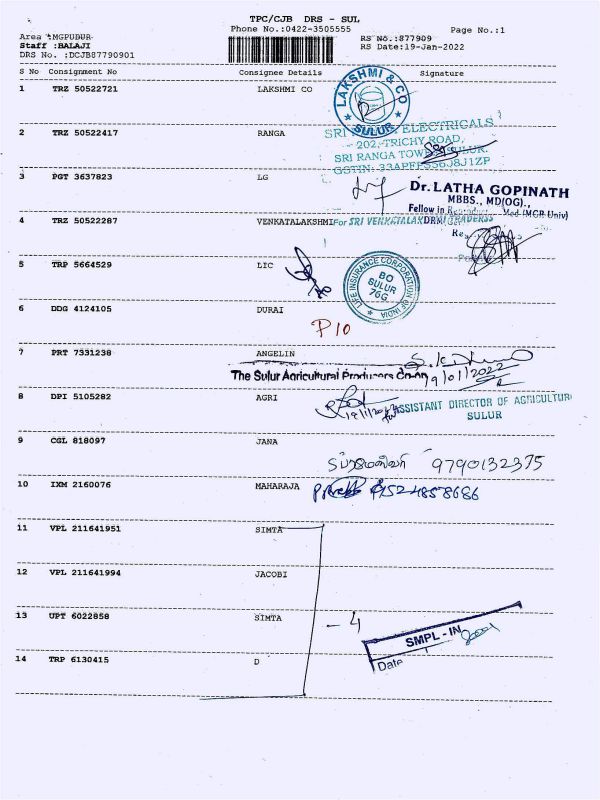 TPC/CJB DRS - SUL
Phone No.:0422-3505555
Page No.:1
Area :MGPUDUR
RS No.:877909
Staff :BALAJI
RS Date:19-Jan-2022
DRS No. :DCJB87790901
S No Consignment No Consignee Details Signature
1 TRZ 50522721 LAKSHMI CO
LAKSHMI & CO
SULUR
2 TRZ 50522417 RANGA
SRI ELECTRICALS
202, TRICHY ROAD,
SRI RANGA TOWER, SULUR.
3 PGT 3637823 LG
Dr. LATHA GOPINATH
MBBS., MD(OG).,
Fellow in Med (MGR Univ)
4 TRZ 50522287 VENKATALAKSHMI
For SRI VENKATALAKSHMI TRADERSS
5 TRP 5664529 LIC
LIFE INSURANCE CORPORATION OF INDIA
BO
SULUR
76G
6 DDG 4124105 DURAI
P10
7 PRT 7331238 ANGELIN
The Sulur Agricultural Producers Co-op
19/01/2022
8 DPI 5105282 AGRI
19/1/2022
ASSISTANT DIRECTOR OF AGRICULTUR
SULUR
9 CGL 818097 JANA
9790132375
10 IXM 2160076 MAHARAJA
9524858686
11 VPL 211641951 SIMTA
12 VPL 211641994 JACOBI
13 UPT 6022858 SIMTA
- 4
SMPL - IN
Date
14 TRP 6130415 D